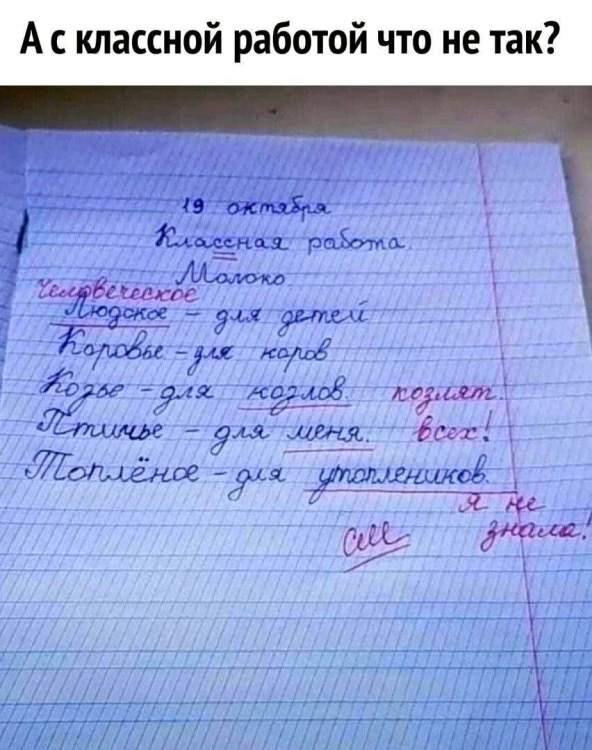 А с классной работой что не так?
19 октября
Классная работа.
Молоко
Человеческое
Людское - для детей
Коровье - для коров
Козье - для козлов. козлят
Птичье - для меня. всех!
Топлёное - для утоплеников.
я не
см знала!